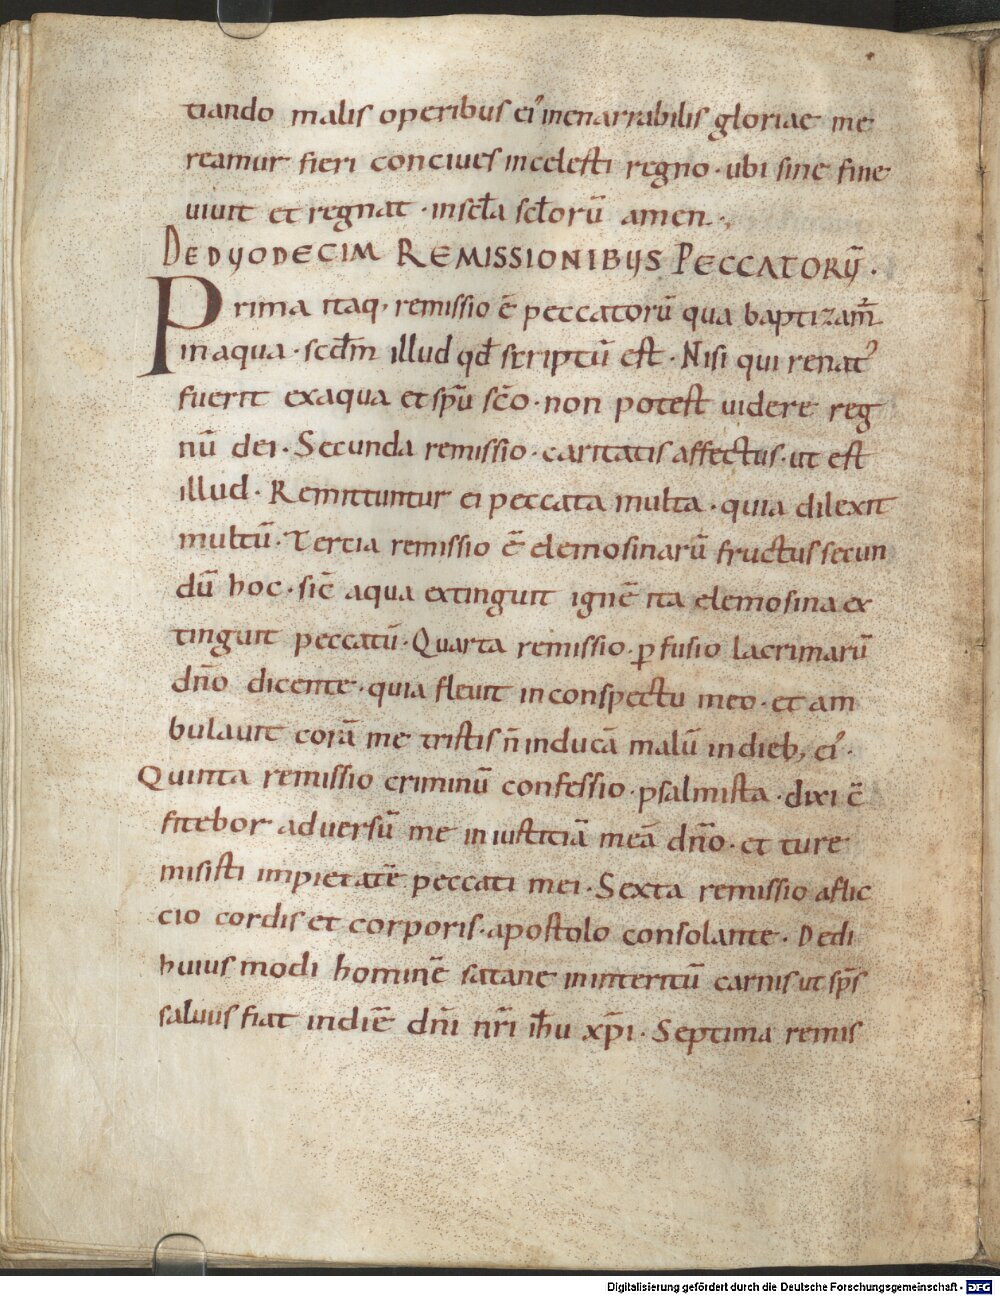 tiando malis operibus ei' inenarrabilis gloriae me
reamur fieri conciues incelesti regno · ubi sine fine
uiuit et regnat · inscła scłorū amen ·,
DE DUODECIM REMISSIONIBUS PECCATORŪ ·
Prima itaq, remissio ē peccatorū qua baptizam̄
inaqua · scdm̄ illud qđ scriptū est · Nisi qui renat'
fuerit exaqua et sp̄u sc̄o · non potest uidere reg
nū dei · Secunda remissio · caritatis affectus · ut est
illud · Remittuntur ei peccata multa · quia dilexit
multū · Tercia remissio ē elemosinarū fructus secun
dū hoc · sic̄ aqua extinguit ignē ita elemosina ex
tinguit peccatū · Quarta remissio · ꝑfusio lacrimarū
dn̄o dicente · quia fleuit inconspectu meo · et am
bulauit corā me tristis n̄ inducā malū indieb, ei' ·
Quinta remissio criminū confessio · psalmista · dixi c̄
fitebor aduersū me iniusticiā meā dn̄o · et ture
misisti impietatē peccati mei · Sexta remissio aflic
cio cordis et corporis · apostolo consolante · Dedi
huius modi hominē satane ininteritū carnis ut sp̄s
saluus fiat indiē dn̄i nr̄i ih̄u xp̄i · Septima remis
Digitalisierung gefördert durch die Deutsche Forschungsgemeinschaft - DFG